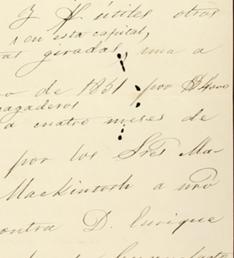 y útiles otros
en esta capital,
giradas, una a
o de 1851 por
pagaderos
a cuatro meses de
por los Sres Ma-
Mackintosh a uno
contra D. Enrique